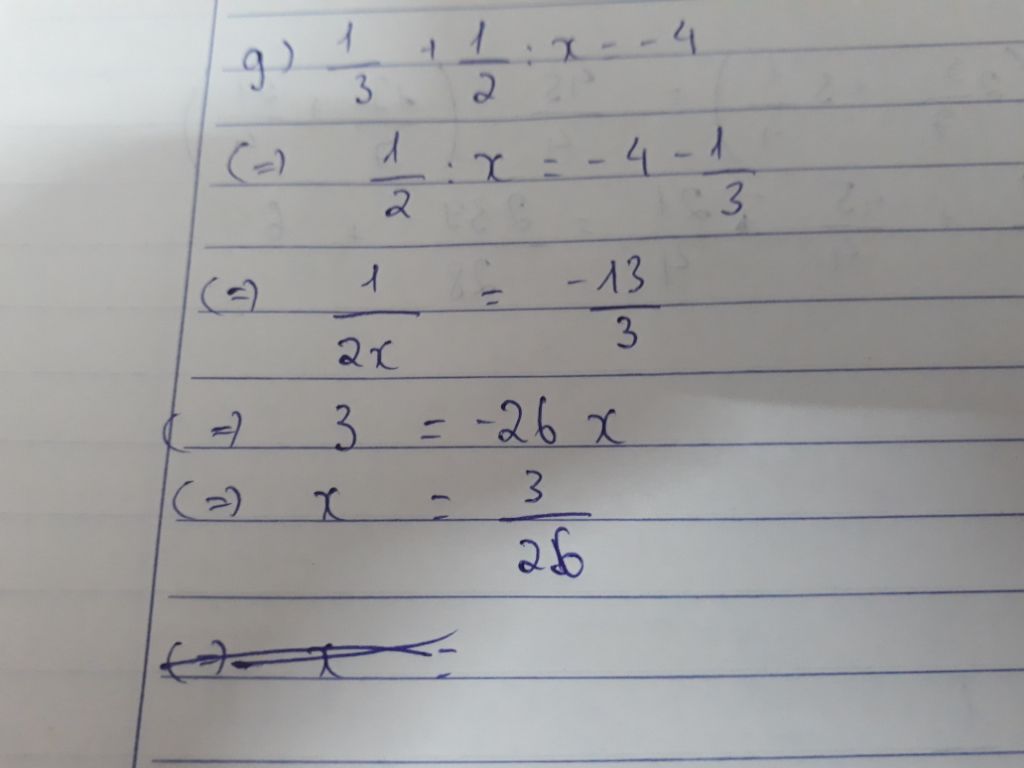 g) 1/3 + 1/2 : x = -4
(=) 1/2 : x = -4 - 1/3
(=) 1/2x = -13/3
(=) 3 = -26 x
(=) x = 3/26
(=) x =